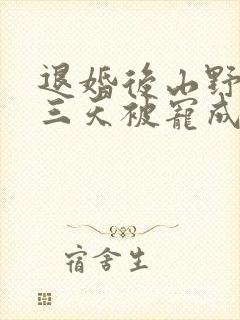 退婚後山野
三天被寵成
宿舍生